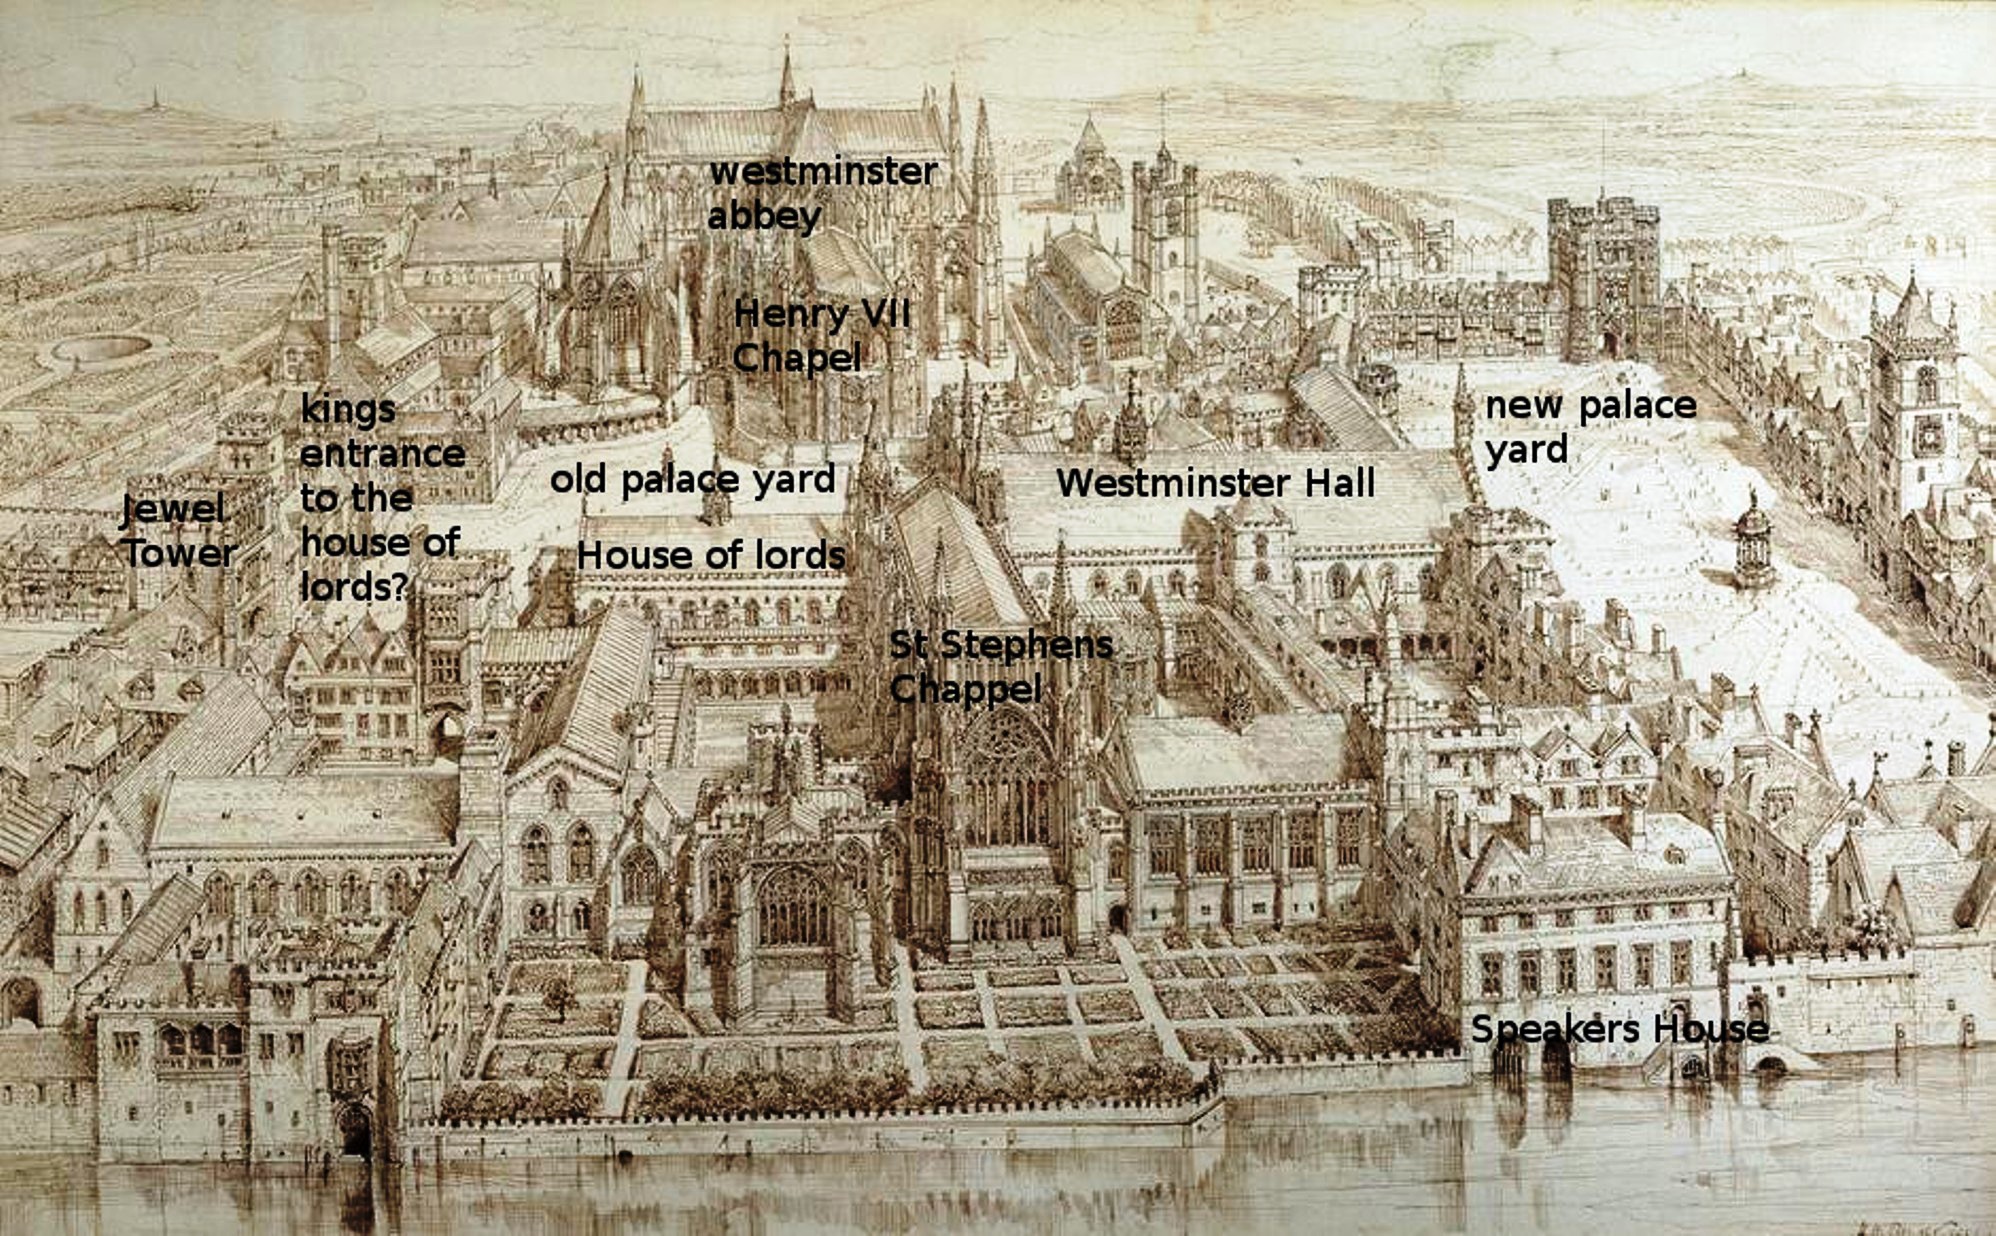 westminster
abbey
Henry VII
Chapel
kings
entrance
to the
house of
lords?
Jewel
Tower
old palace yard
House of lords
Westminster Hall
new palace
yard
St Stephens
Chappel
Speakers House